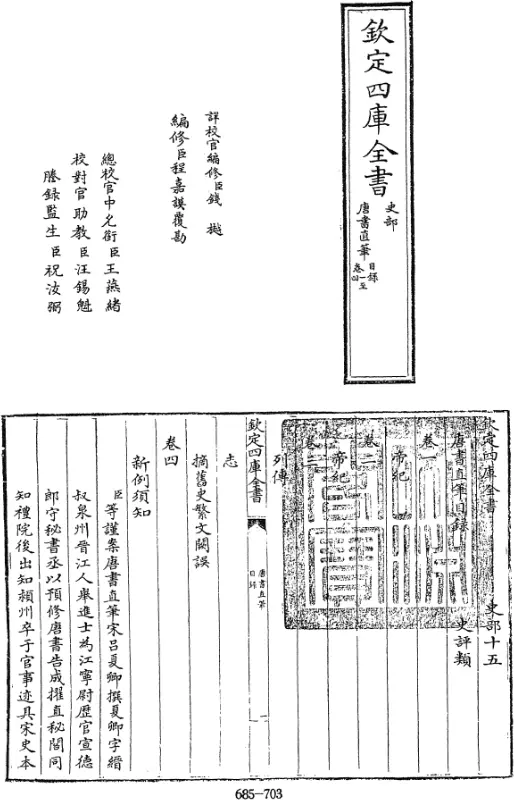 欽定四庫全書
史部
唐書直筆
目錄
卷一至
卷四
詳校官編修臣錢樾
編修臣程嘉謨覆勘
總校官中允銜臣王燕緒
校對官助教臣汪錫魁
謄録監生臣祝汝弼
欽定四庫全書
史部十五
唐書直筆目録
史評類
卷一
帝紀一
卷二
帝紀二
卷三
列傳
欽定四庫全書
唐書直筆
目録
一
志
摘舊史繁文闕誤
卷四
新例須知
臣等謹案唐書直筆宋吕夏卿撰夏卿字縉
叔泉州晉江人舉進士為江寧尉歴官宣德
郎守秘書丞以預修唐書告成擢直秘閣同
知禮院後出知潁州卒于官事迹具宋史本
685-703